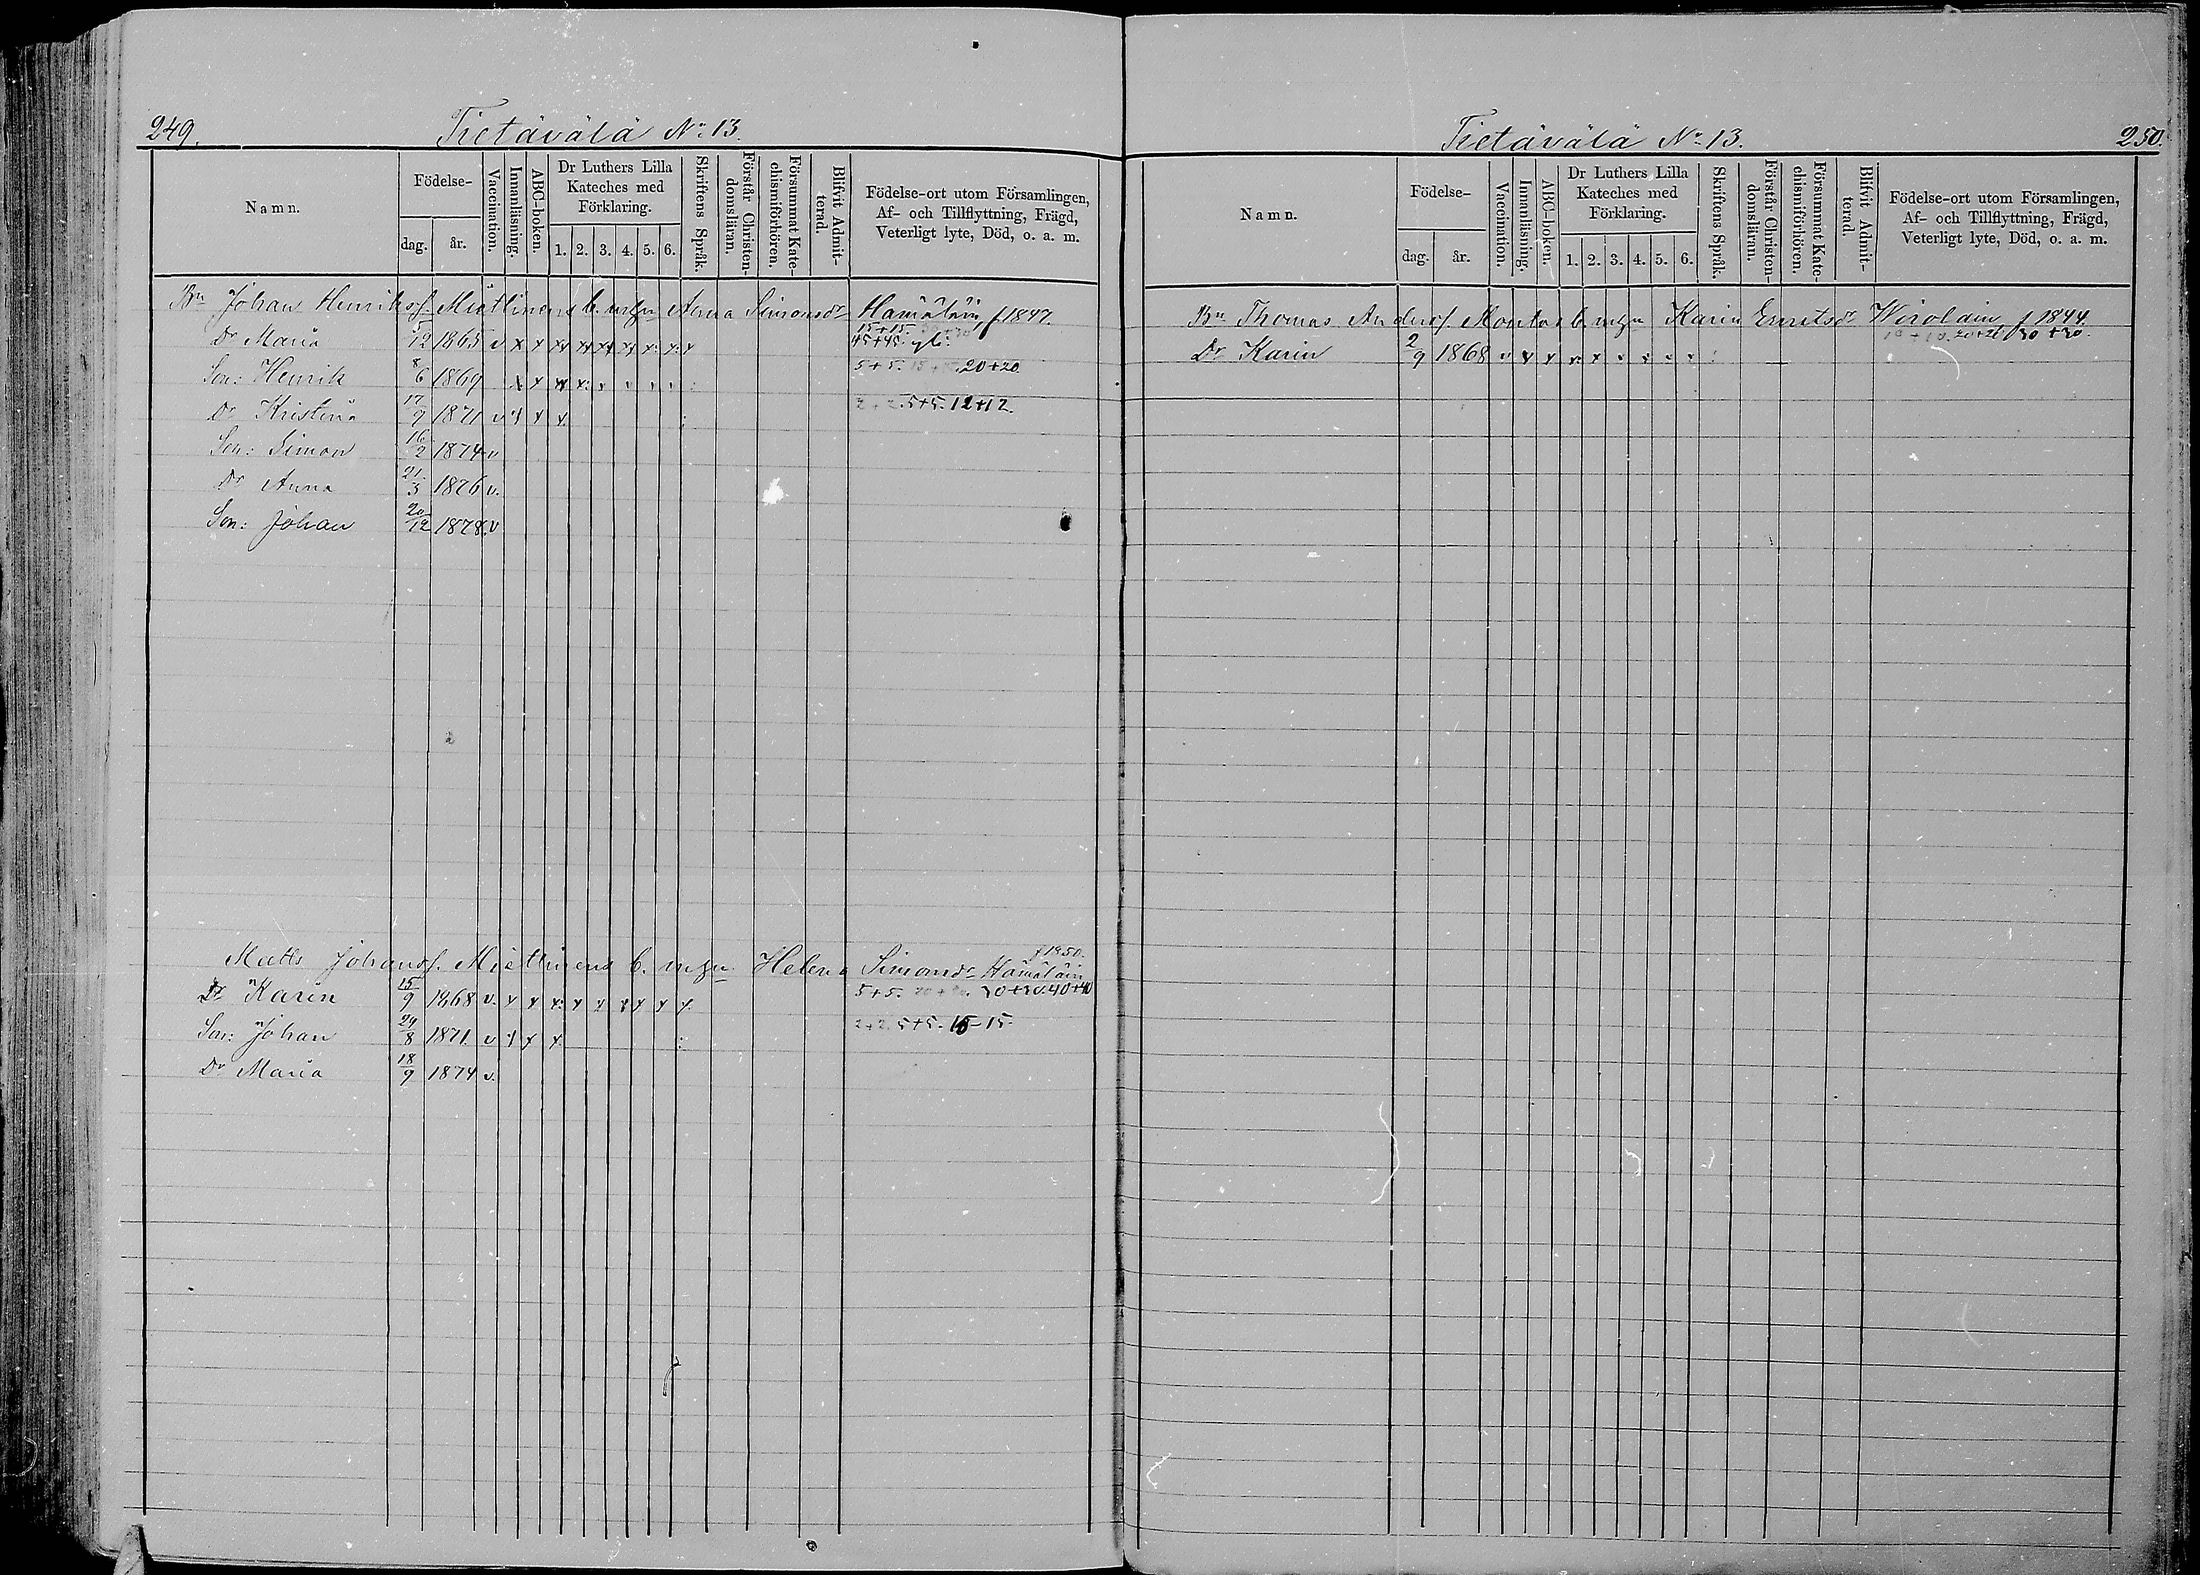 249.
Tietävälä No 13.
Namn.
Födelse-
dag. år.
Vaccination.
Innanläsning.
ABC-boken.
Dr Luthers Lilla Kateches med Förklaring.
1. 2. 3. 4. 5. 6.
Skriftens Språk.
Förstår Christendomsläran.
Försummat Katechismiförhören.
Blifvit Admitterad.
Födelse-ort utom Församlingen,
Af- och Tillflyttning, Frägd,
Veterligt lyte, Död, o. a. m.
Bn Johan Henrikss. Miettinens b. m hu Anna Simonsdr Hämäläin f 1847.
Dr Maria 5/12 1865 v x x 15+15. 45+45.
Son: Henrik 8/6 1869 x x 5+5. 20+20.
Dr Kristina 17/9 1871 v x x 2+2. 5+5. 12+12.
Son: Simon 16/2 1874 v
Dr Anna 21/3 1876 v.
Son: Johan 20/12 1878. v
f 1850.
Matts Johanss. Miettinens b. m hu Helena Simonsdr Hämäläin
Dr Karin 15/9 1868 v. x x x x x x x x 5+5. 40+40
Son: Johan 29/8 1871. v x x x 2+2. 5+5. 15-15.
Dr Maria 18/9 1874 v.
Tietävälä No 13.
250.
Namn.
Födelse-
dag. år.
Vaccination.
Innanläsning.
ABC-boken.
Dr Luthers Lilla Kateches med Förklaring.
1. 2. 3. 4. 5. 6.
Skriftens Språk.
Förstår Christendomsläran.
Försummat Katechismiförhören.
Blifvit Admitterad.
Födelse-ort utom Församlingen,
Af- och Tillflyttning, Frägd,
Veterligt lyte, Död, o. a. m.
Bn Thomas Anderss. b. m hu Karin Wirolain f 1844.
Dr Karin 2/9 1868 v x x 20+20. 30+30.